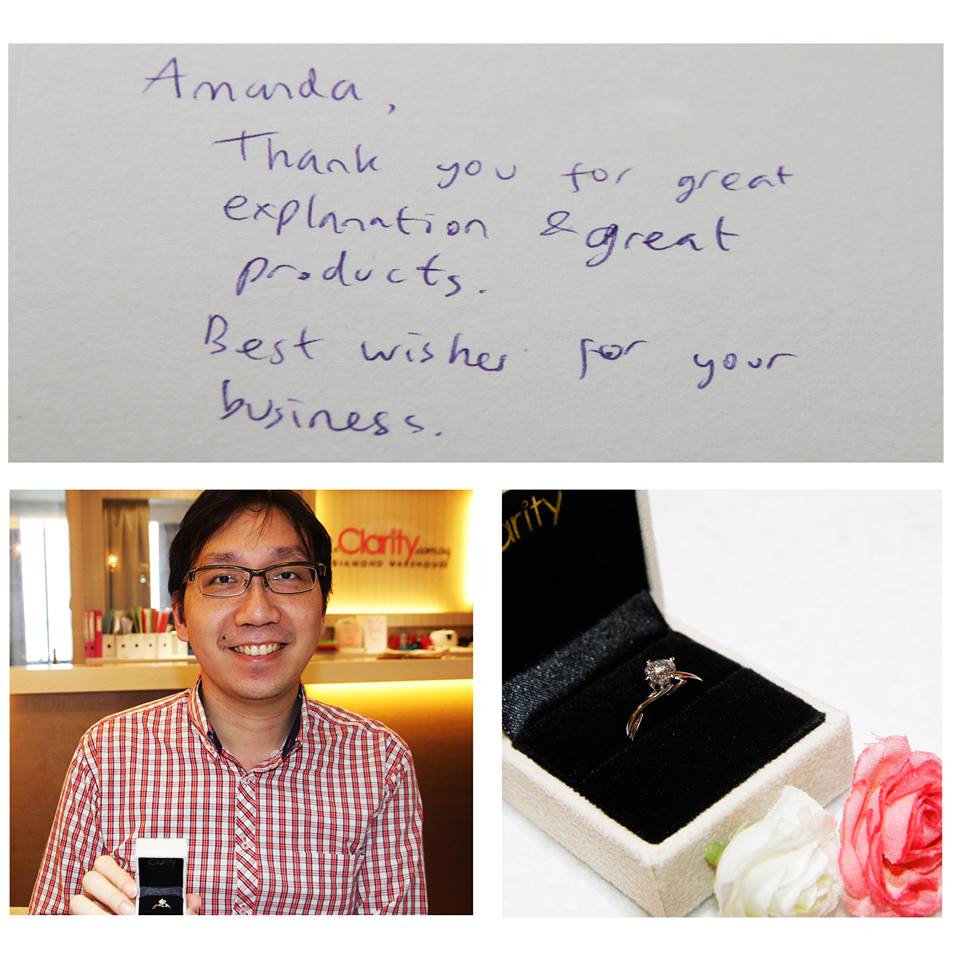 Amanda,
Thank you for great
explanation & great
products.
Best wishes for your
business.
Clarity.com.my
DIAMOND WAREHOUSE
arity
Clarity